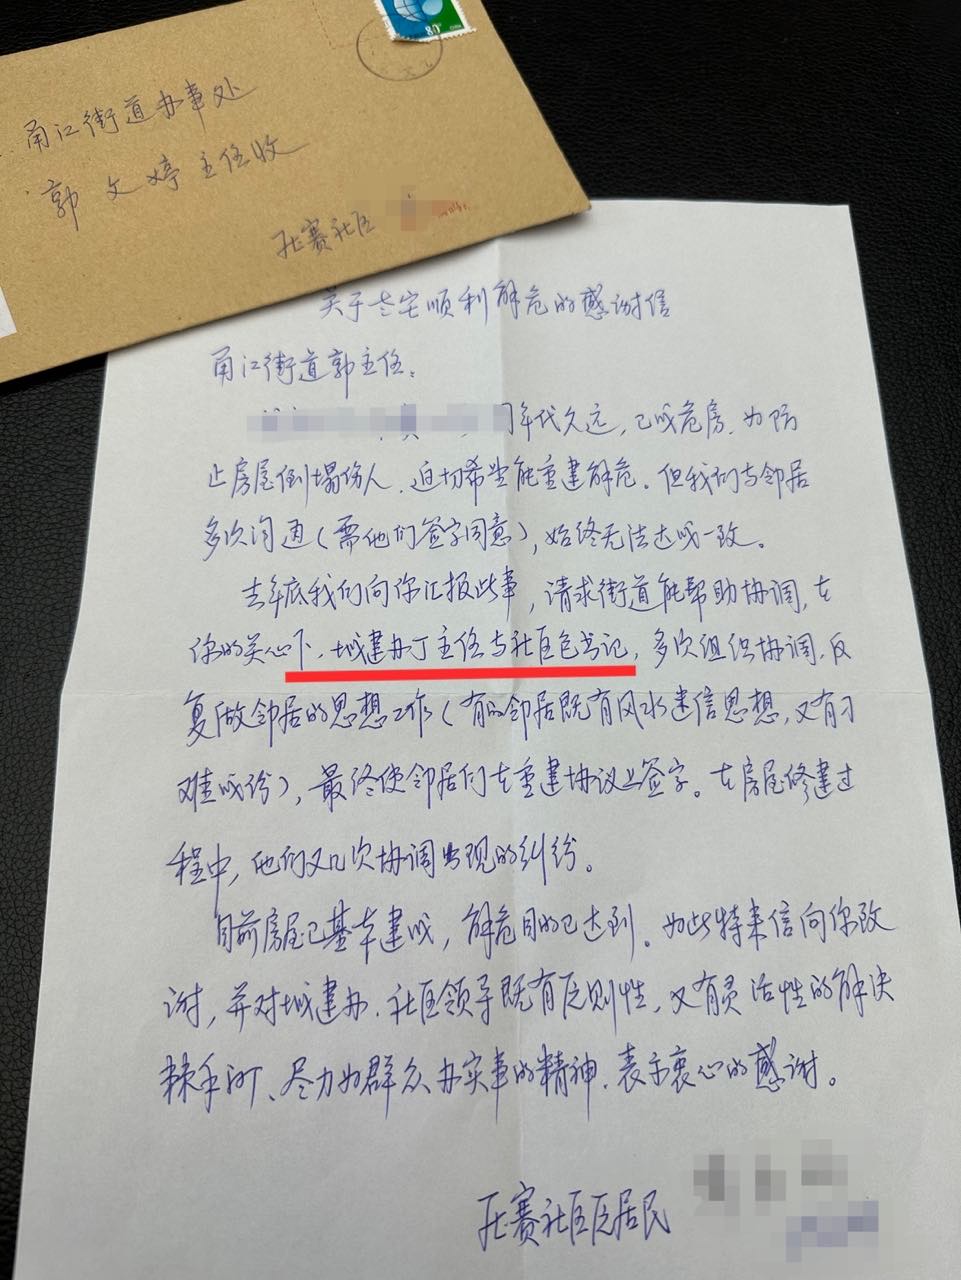 80分
甬江街道办事处
郭文婷主任收
压赛社区
关于老宅顺利解危的感谢信
甬江街道郭主任:
年代久远,已成危房,为防
止房屋倒塌伤人,迫切希望能重建解危。但我们与邻居
多次沟通(需他们签字同意),始终无法达成一致。
去年底我们向你汇报此事,请求街道能帮助协调,在
你的关心下,城建办丁主任与社区包书记,多次组织协调,反
复做邻居的思想工作(有的邻居既有风水迷信思想,又有刁
难成份),最终使邻居们在重建协议上签字。在房屋修建过
程中,他们又几次协调出现的纠纷。
目前房屋已基本建成,解危目的已达到。为此特来信向你致
谢,并对城建办、社区领导既有原则性,又有灵活性的解决
棘手问题、尽力为群众办实事的精神,表示衷心的感谢。
压赛社区居民